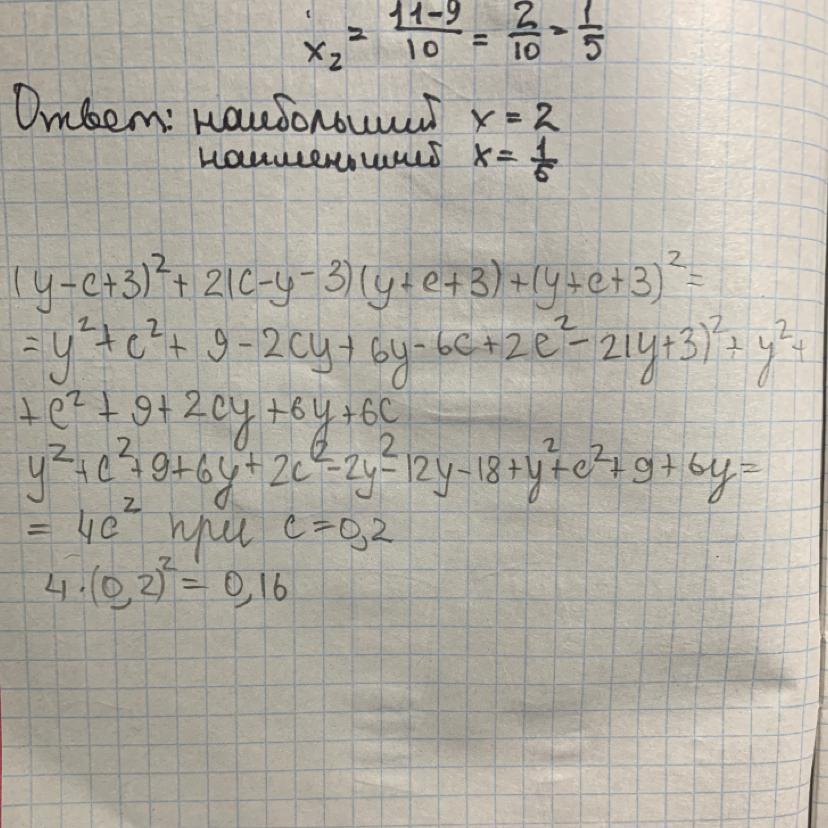 x₂ = (11-9)/10 = 2/10 = 1/5
Ответ: наибольший x = 2
наименьший x = 1/5
(y-c+3)² + 2(c-y-3)(y+c+3)+(y+c+3)² =
= y²+c²+ 9-2cy+ 6y-6c+2c²- 2(y+3)²+ y²+
+c²+9+2cy+6y+6c
y²+c²+9+6y+2c²-2y²-12y-18+y²+c²+9+6y=
= 4c² при c=0,2
4·(0,2)² = 0,16